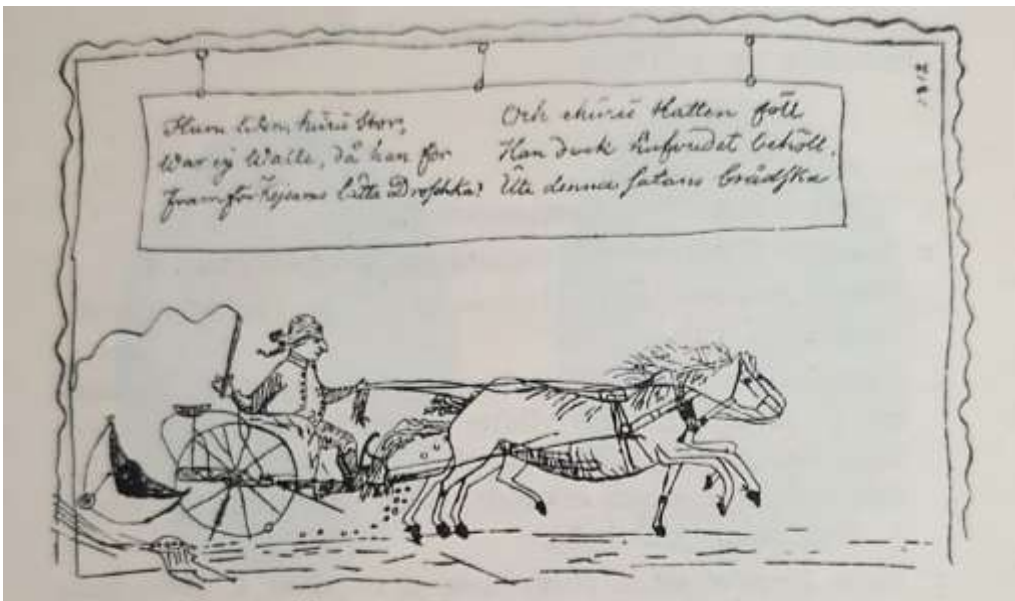 Huru liten, hurŭ Stor,
War ej Walle, då han for
framför Kejsarns lätta Droschka?
Och ehurŭ Hatten föll
Han dock hufvudet behöll,
Uti denna satans brådska
1812